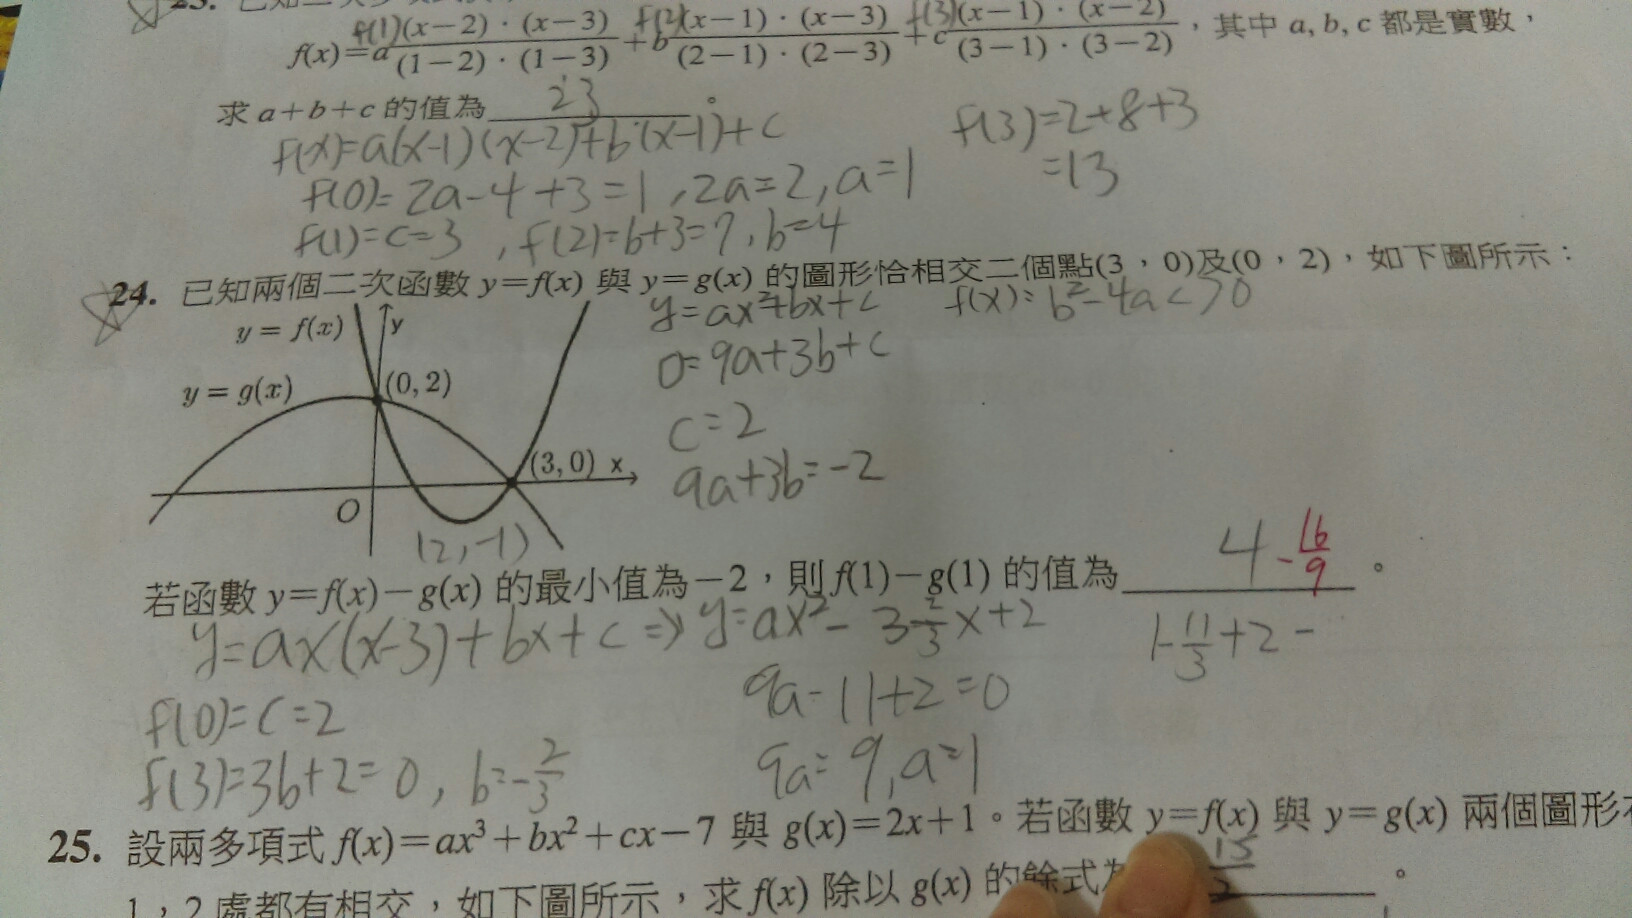 f(x)=a (x−2)·(x−3)/(1−2)·(1−3) + b (x−1)·(x−3)/(2−1)·(2−3) + c (x−1)·(x−2)/(3−1)·(3−2),其中 a, b, c 都是實數,
f(1) f(2) f(3)
求 a+b+c 的值為 23 。
f(x)=a(x-1)(x-2)+b(x-1)+c
f(3)=2+8+3
=13
f(0)=2a-4+3=1,2a=2,a=1
f(1)=c=3,f(2)=b+3=7,b=4
24. 已知兩個二次函數 y=f(x) 與 y=g(x) 的圖形恰相交二個點(3,0)及(0,2),如下圖所示:
y = f(x)
y
y = g(x)
(0, 2)
(3, 0) x
O
(2,-1)
y=ax²+bx+c
f(x): b²-4ac>0
0=9a+3b+c
c=2
9a+3b=-2
若函數 y=f(x)−g(x) 的最小值為−2,則 f(1)−g(1) 的值為 4 -16/9 。
y=ax(x-3)+bx+c⇒y=ax²-3 2/3 x+2
1-11/3+2-
f(0)=c=2
9a-11+2=0
f(3)=3b+2=0,b=-2/3
9a=9,a=1
25. 設兩多項式 f(x)=ax³+bx²+cx−7 與 g(x)=2x+1。若函數 y=f(x) 與 y=g(x) 兩個圖形
1,2 處都有相交,如下圖所示,求 f(x) 除以 g(x) 的餘式 。